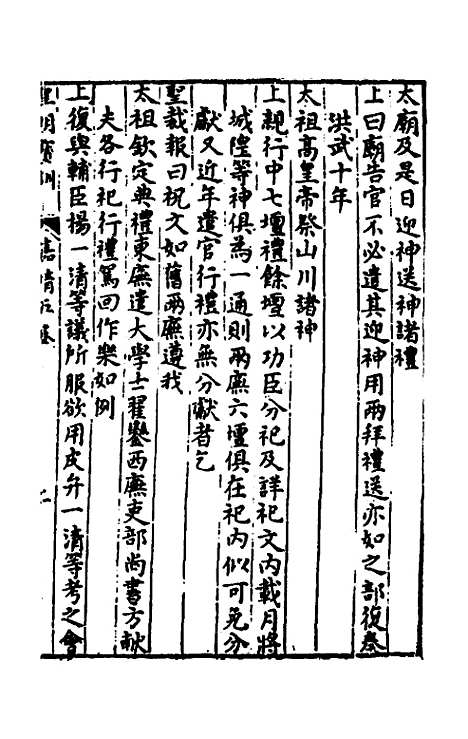 太廟及是日迎神送神諸禮
上曰廟告官不必遣其迎神用兩拜禮送亦如之部復奏
洪武十年
太祖高皇帝祭山川諸神
上親行中七壇禮餘壇以功臣分祀及詳祀文內載月將
城隍等神俱為一通則兩廡六壇俱在祀內似可免分
獻又近年遣官行禮亦無分獻者乞
聖裁報曰祝文如舊兩廡遵我
太祖欽定典禮東廡遣大學士翟鑾西廡吏部尚書方獻
夫各行祀行禮駕回作樂如例
上復與輔臣楊一清等議所服欲用皮弁一清等考之會
皇明寶訓 嘉靖 卷 二